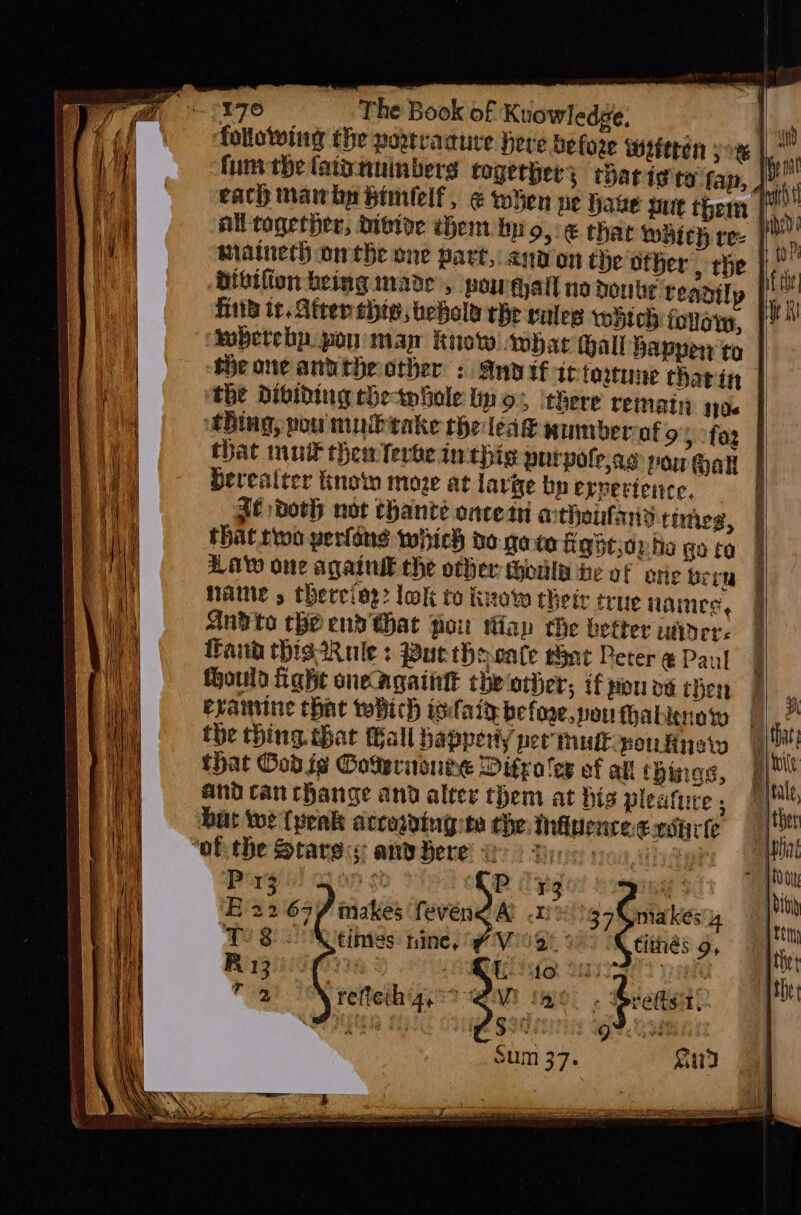 170 The Book of Knowledge.
following the portraature here before written ; &
sum the said numbers together; that is to say,
each man by himself, & when ye have put them
all together, divide them by 9, & that which re-
maineth on the one part, and on the other, the
division being made, you shall no doubt readily
find it. After this, behold the rules which follow,
whereby you may know what shall happen to
the one and the other : And if it fortune that in
the dividing the whole by 9, there remain no-
thing, you must take the least number of 9, for
that must then serve in this purpose, as you shall
hereafter know more at large by experience.
It doth not chance once in a thousand times,
that two persons which do go to fight, or do go to
Law one against the other should be of one very
name, therefore look to know their true names,
And to the end that you may the better under-
stand this Rule : Put the case that Peter & Paul
should fight one against the other; if you do then
examine that which is said before, you shal know
the thing that shall happen; yet must you know
that God is Governour & Disposer of all things,
and can change and alter them at his pleasure;
but we speak according to the influence & course
of the Stars; and here
P 13 P 13
E 22 67 makes seven A 1 37 makes 4
T 8 times nine, V 2 times 9,
R 13 L 10
r 2 resteth 4, V 2 rests 1.
S 9
Sum 37. And